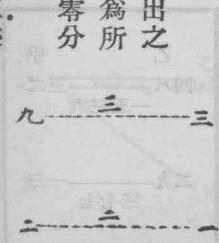 出之
為所
零分
三
九 三
二
二 一